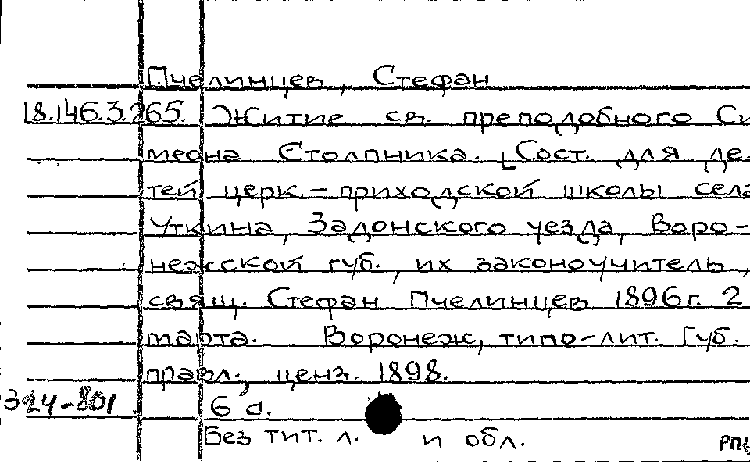 Пчелинцев, Стефан
18.146.3.265. Житие св. преподобного Си
меона Столпника. [Сост. для де
тей церк.-приходской школы села
Уткина, Задонского уезда, Воро-
нежской губ., их законоучитель,
свящ. Стефан Пчелинцев 1896 г. 2
марта. Воронеж, типо-лит. Губ.
правл., ценз. 1898.
324-801 6 с.
Без тит. л. и обл.